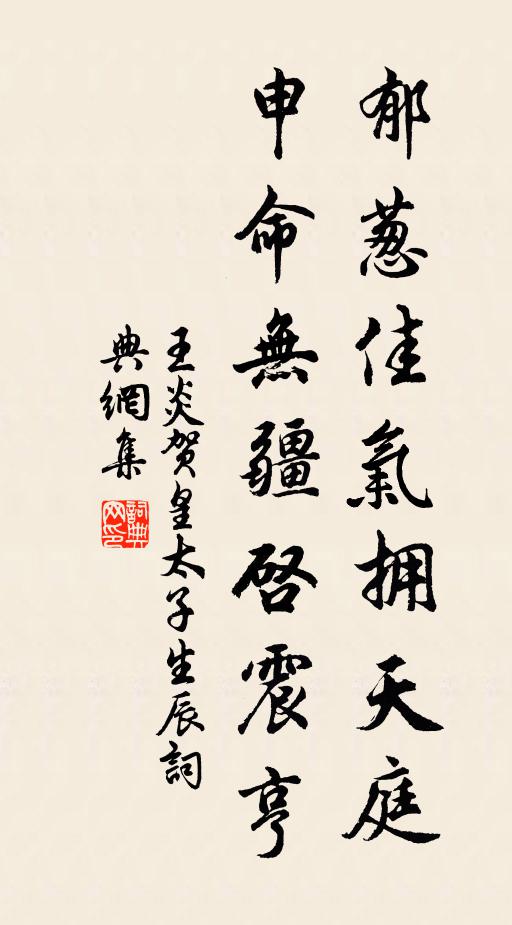 郁葱佳氣拥天庭
申命無疆啓震亨
王炎賀皇太子生辰詞
典網集
詞典網印